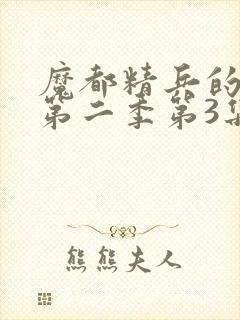 魔都精兵的
第二季第3集
熊熊夫人